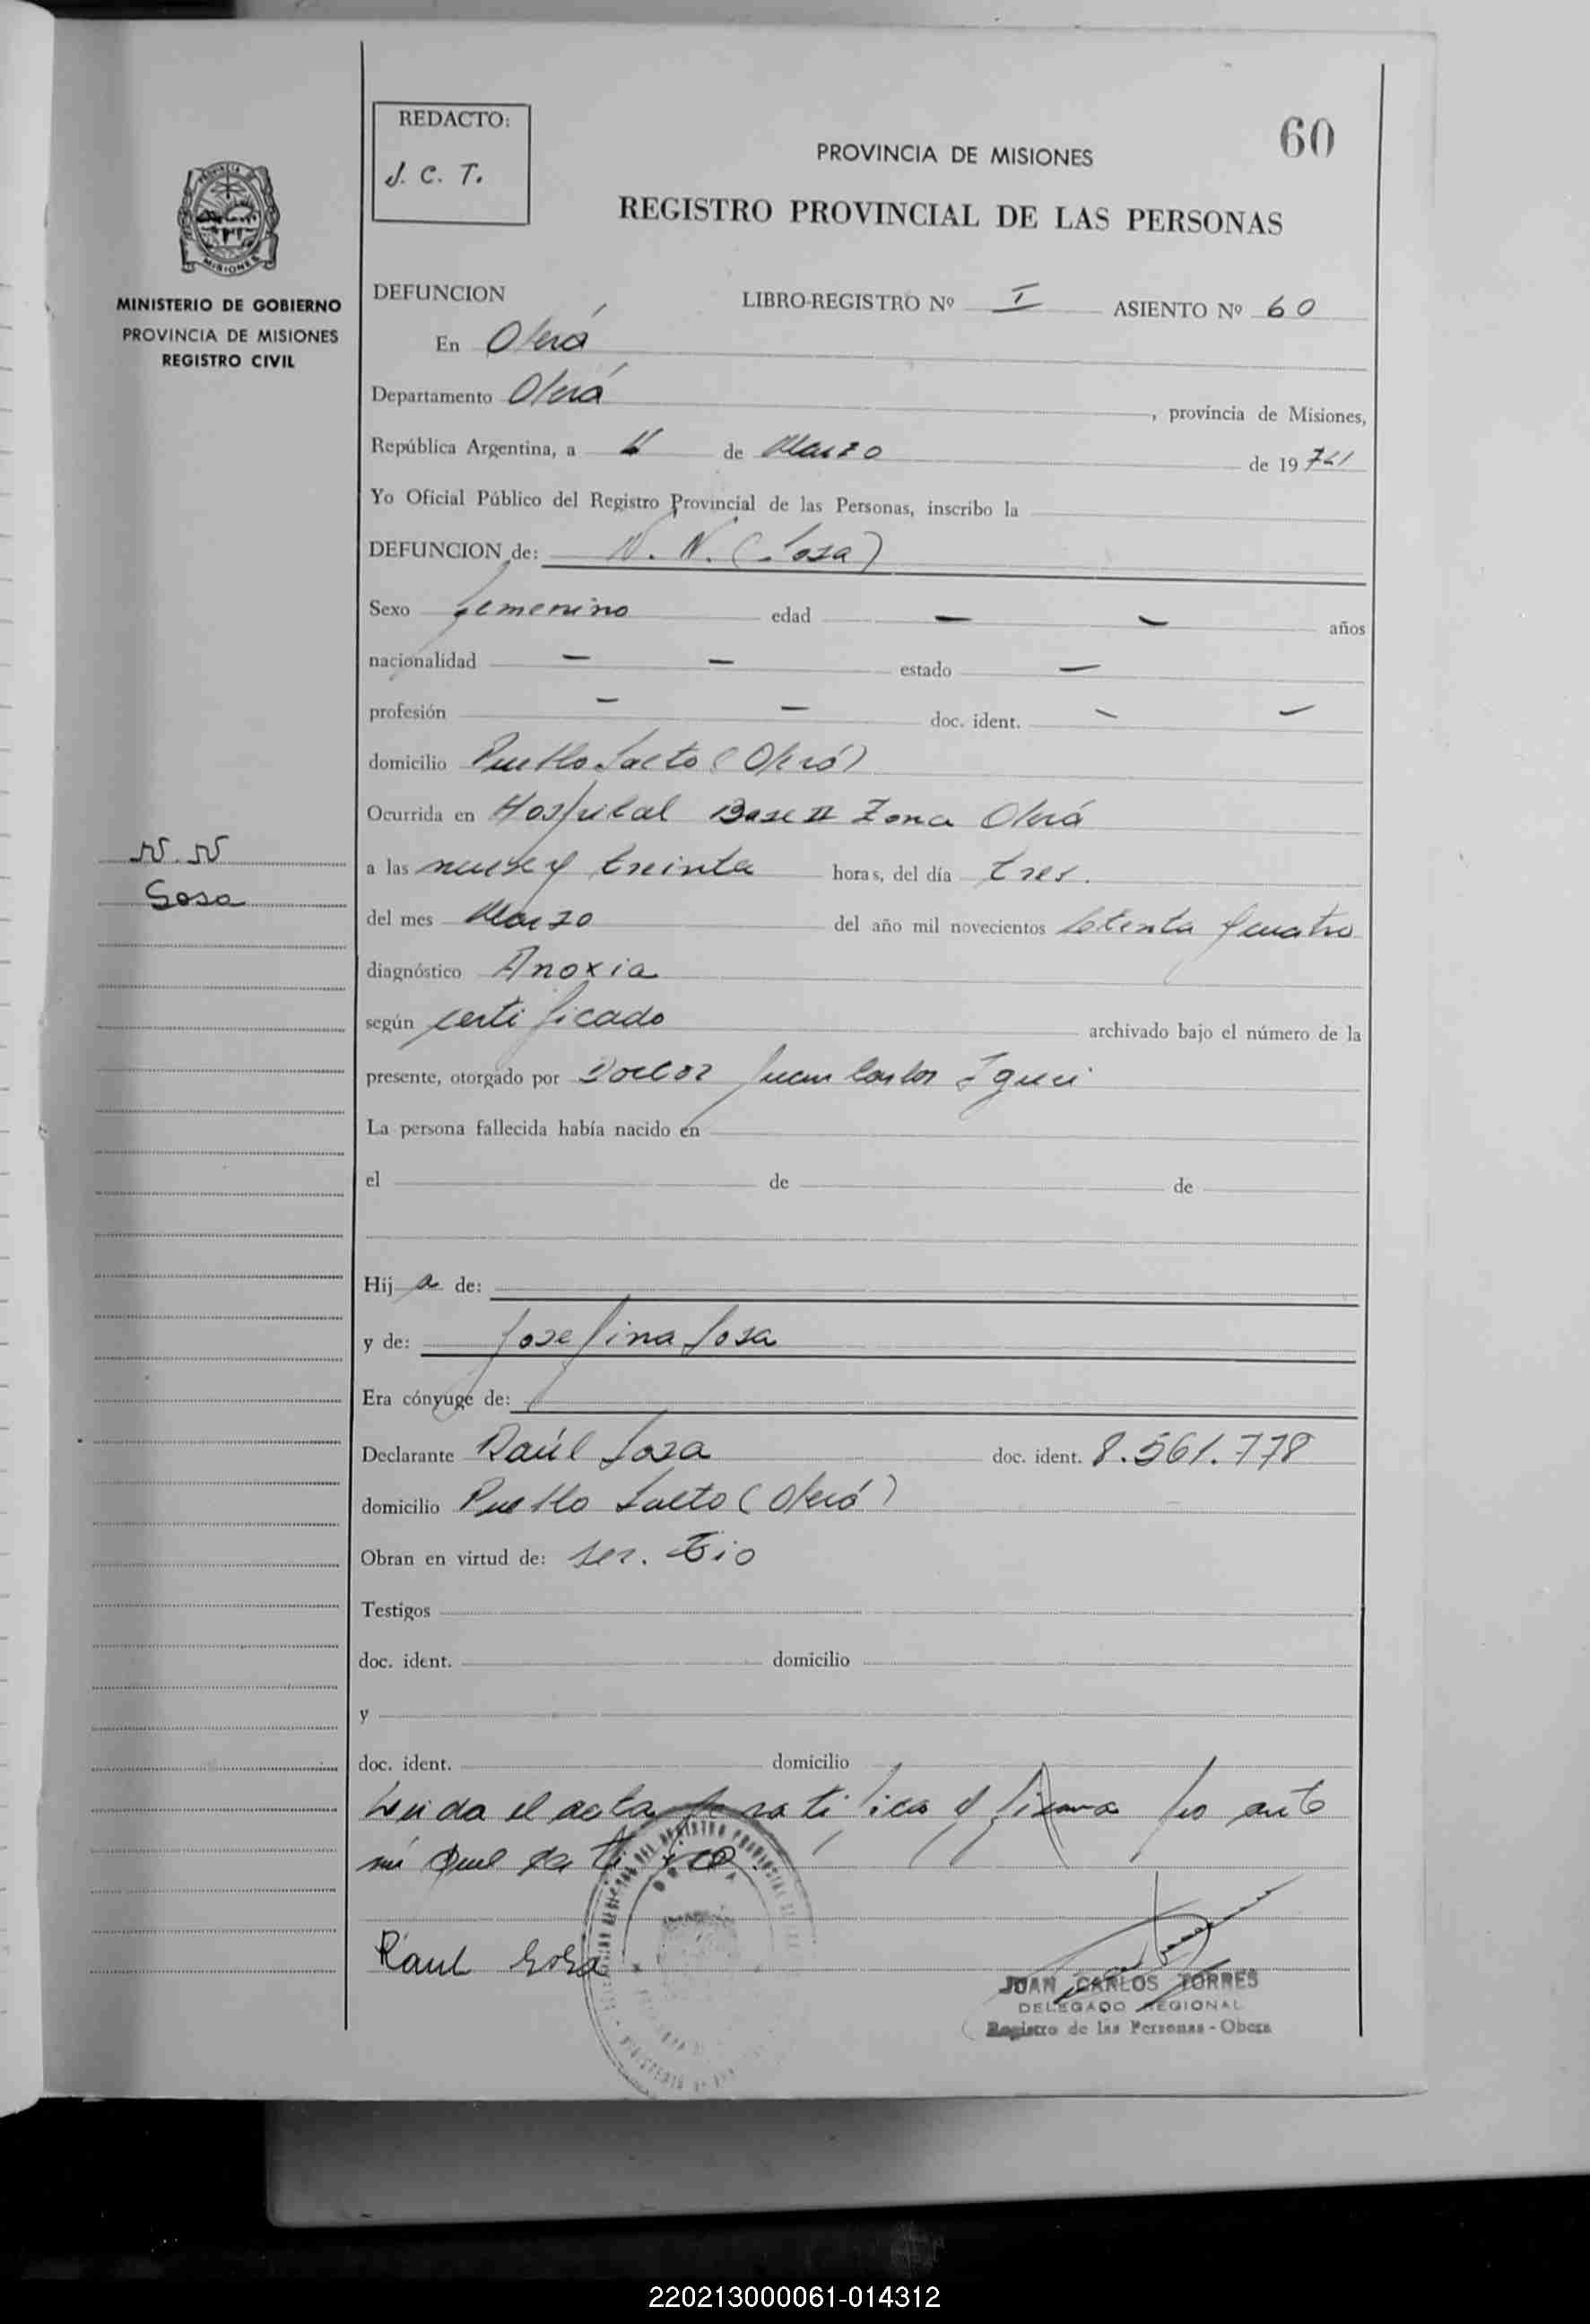 REDACTO:
J. C. T.
60
PROVINCIA DE MISIONES
REGISTRO PROVINCIAL DE LAS PERSONAS
MISIONES
MINISTERIO DE GOBIERNO
PROVINCIA DE MISIONES
REGISTRO CIVIL
DEFUNCION LIBRO-REGISTRO Nº I ASIENTO Nº 60
En Oberá
Departamento Oberá, provincia de Misiones,
República Argentina, a 4 de Marzo de 1974
Yo Oficial Público del Registro Provincial de las Personas, inscribo la
DEFUNCION de: N. N. (Sosa)
Sexo femenino edad — — años
nacionalidad — — estado —
profesión — — doc. ident. — —
domicilio Pueblo Salto (Oberá)
Ocurrida en Hospital Base II Zona Oberá
N. N
Sosa
a las nueve y treinta horas, del día tres.
del mes Marzo del año mil novecientos setenta y cuatro
diagnóstico Anoxia
según certificado archivado bajo el número de la
presente, otorgado por Doctor Juan Carlos
La persona fallecida había nacido en
el de de
Hija de:
y de: Josefina Sosa
Era cónyuge de:
Declarante Raúl Sosa doc. ident. 8.561.778
domicilio Pueblo Salto (Oberá)
Obran en virtud de: ser. Tio
Testigos
doc. ident. domicilio
y
doc. ident. domicilio
Leida el acta se ratifica y firma por ante
mi que
Raul Sosa
JUAN CARLOS TORRES
DELEGADO REGIONAL
Registro de las Personas - Obera
220213000061-014312